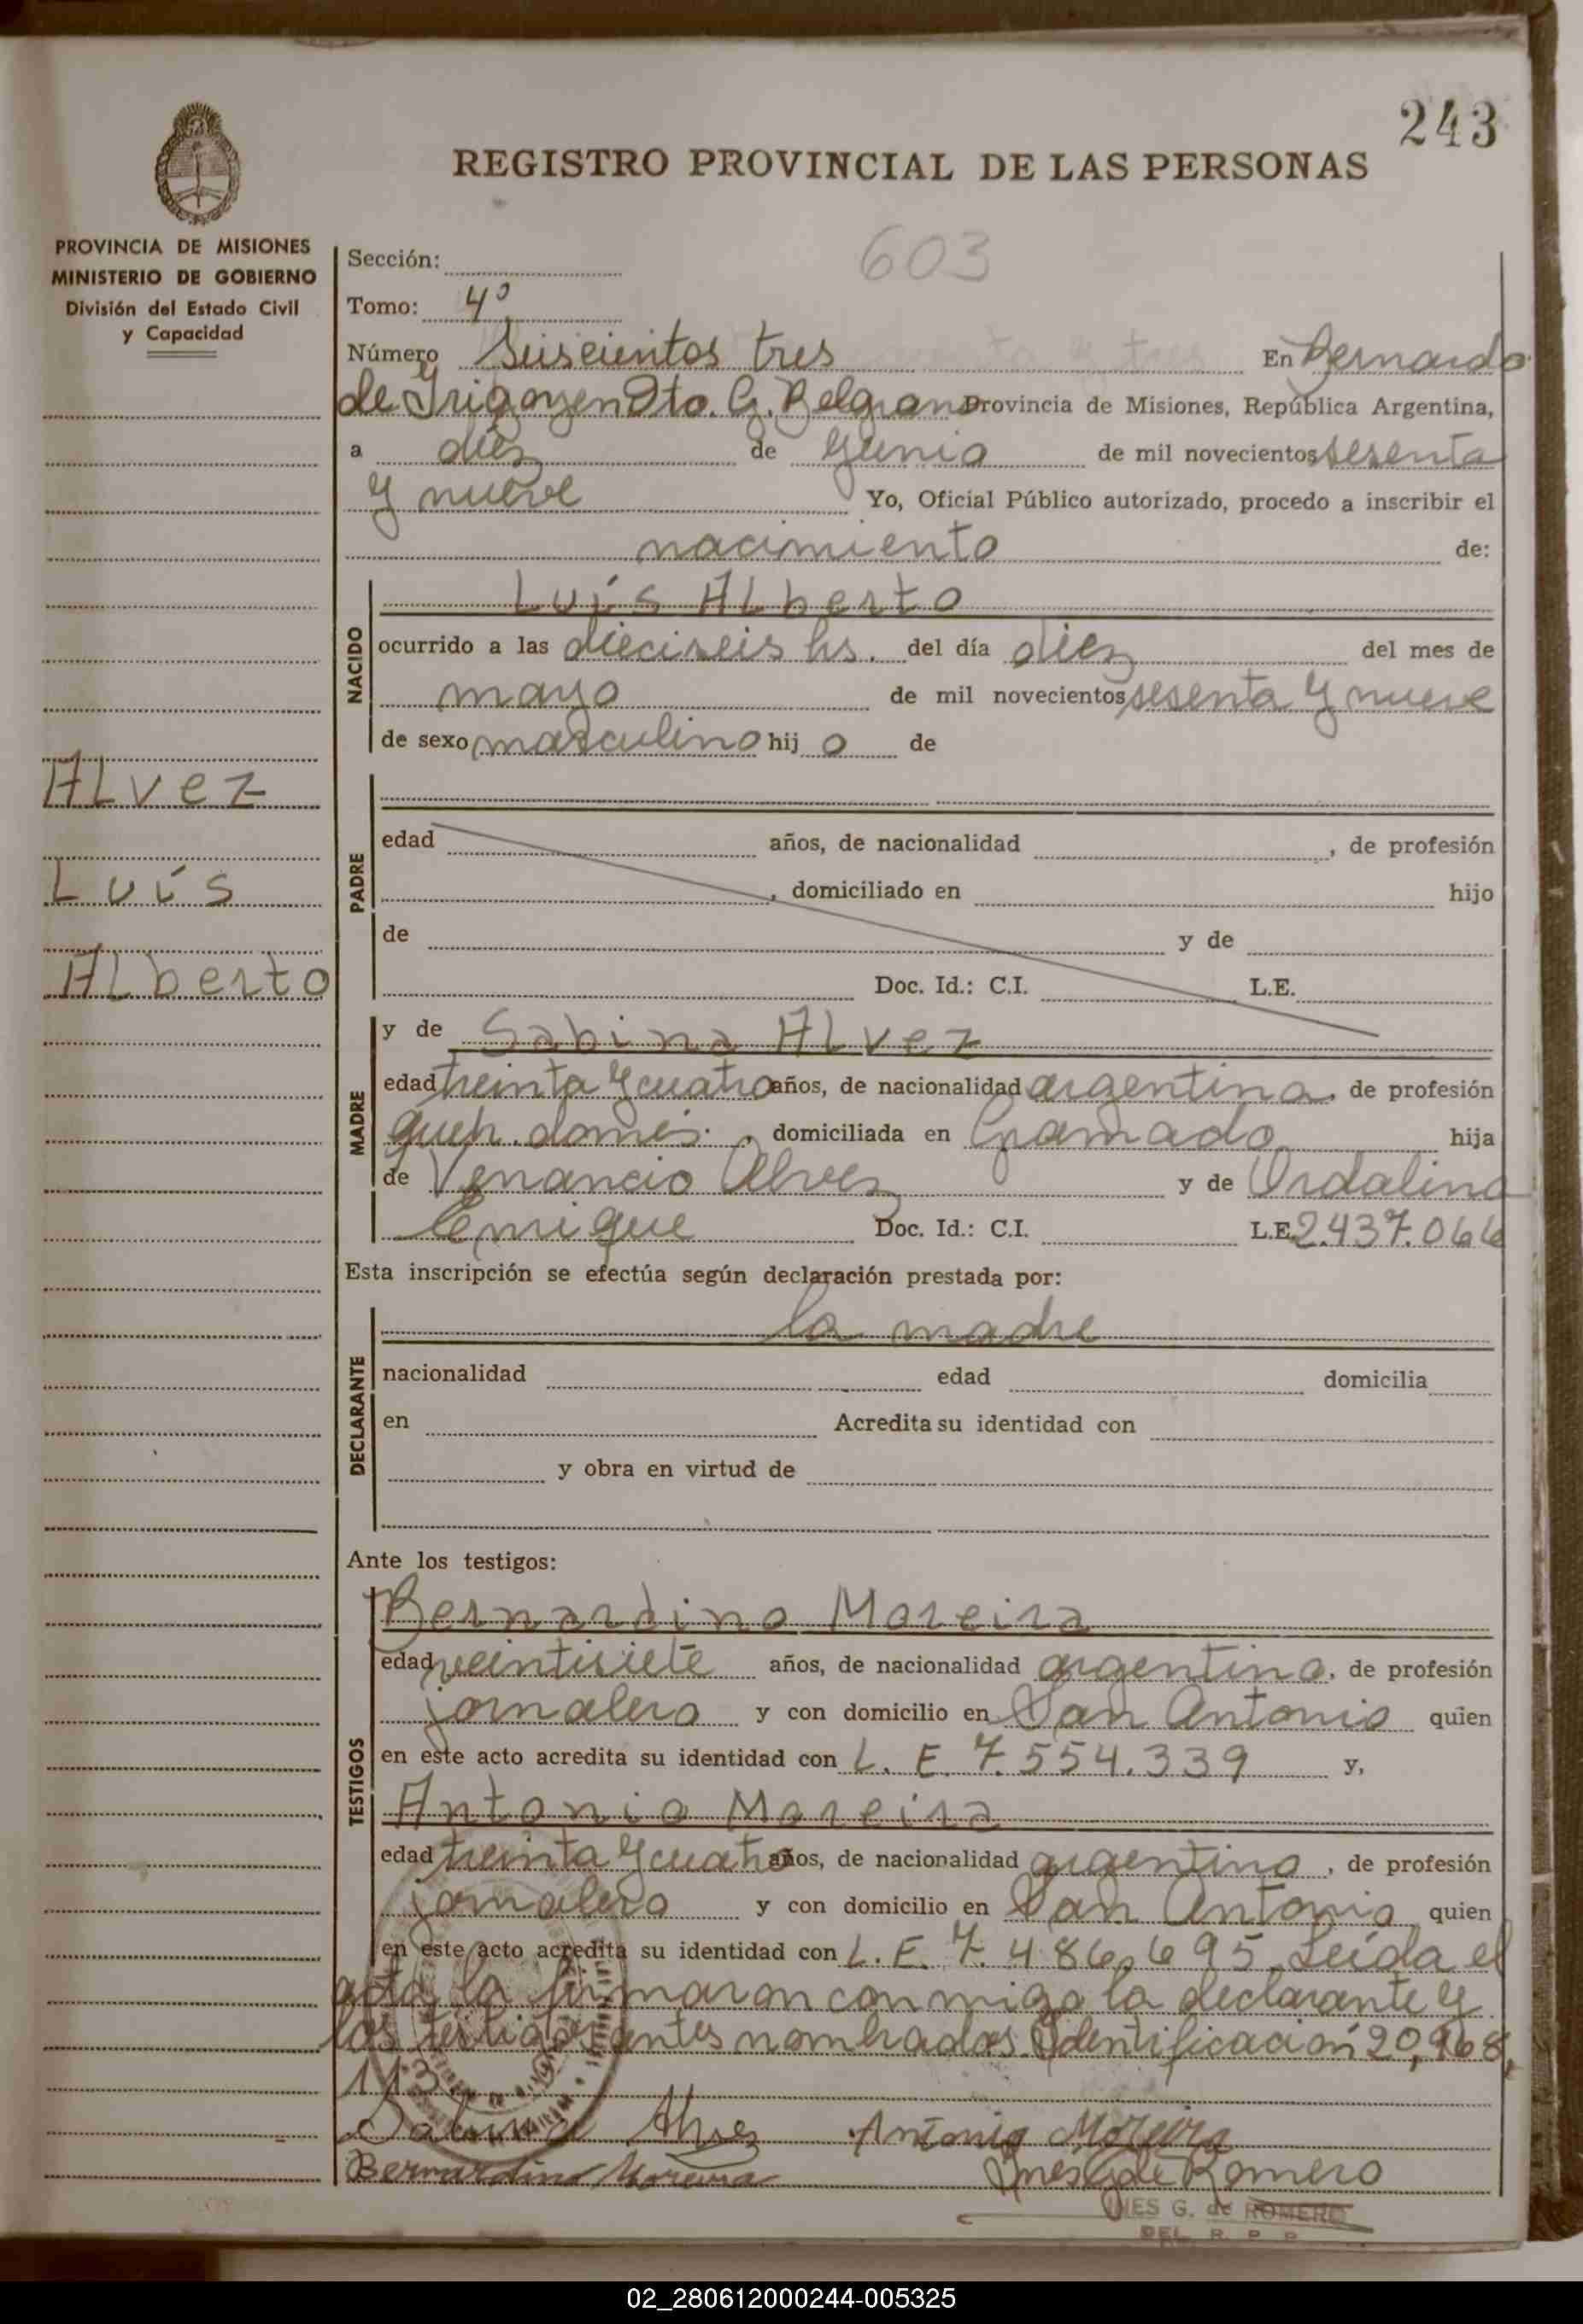 243
REGISTRO PROVINCIAL DE LAS PERSONAS
PROVINCIA DE MISIONES
MINISTERIO DE GOBIERNO
División del Estado Civil
y Capacidad
Alvez
Luís
Alberto
Sección:
603
Tomo: 4º
Número Seiscientos tres En Bernardo
de Irigoyen Dto. G. Belgrano Provincia de Misiones, República Argentina,
a diez de junio de mil novecientos sesenta
y nueve Yo, Oficial Público autorizado, procedo a inscribir el
nacimiento de:
NACIDO
Luís Alberto
ocurrido a las dieciseis hs. del día diez del mes de
mayo de mil novecientos sesenta y nueve
de sexo masculino hij o de
PADRE
edad años, de nacionalidad , de profesión
, domiciliado en hijo
de y de
Doc. Id.: C.I. L.E.
MADRE
y de Sabina Alvez
edad treinta y cuatro años, de nacionalidad argentina, de profesión
queh. domés. , domiciliada en Gramado hija
de Venancio Alvez y de Ordalina
Doc. Id.: C.I. L.E. 2.437.066
Esta inscripción se efectúa según declaración prestada por:
DECLARANTE
la madre
nacionalidad edad domicilia
en Acredita su identidad con
y obra en virtud de
Ante los testigos:
TESTIGOS
Bernardino Moreira
edad veintisiete años, de nacionalidad argentino, de profesión
jornalero y con domicilio en San Antonio quien
en este acto acredita su identidad con L. E. 7.554.339 y,
Antonio Moreira
edad treinta y cuatro años, de nacionalidad argentino, de profesión
jornalero y con domicilio en San Antonio quien
en este acto acredita su identidad con L. E. 7.486.695 Leída el
acta la firmaron conmigo la declarante y
los testigos antes nombrados. Identificación 20,968,
113.
Sabina Alvez Antonio Moreira
Bernardino Moreira Ines G de Romero
INES G. de ROMERO
DEL. R. P. P.
02_280612000244-005325